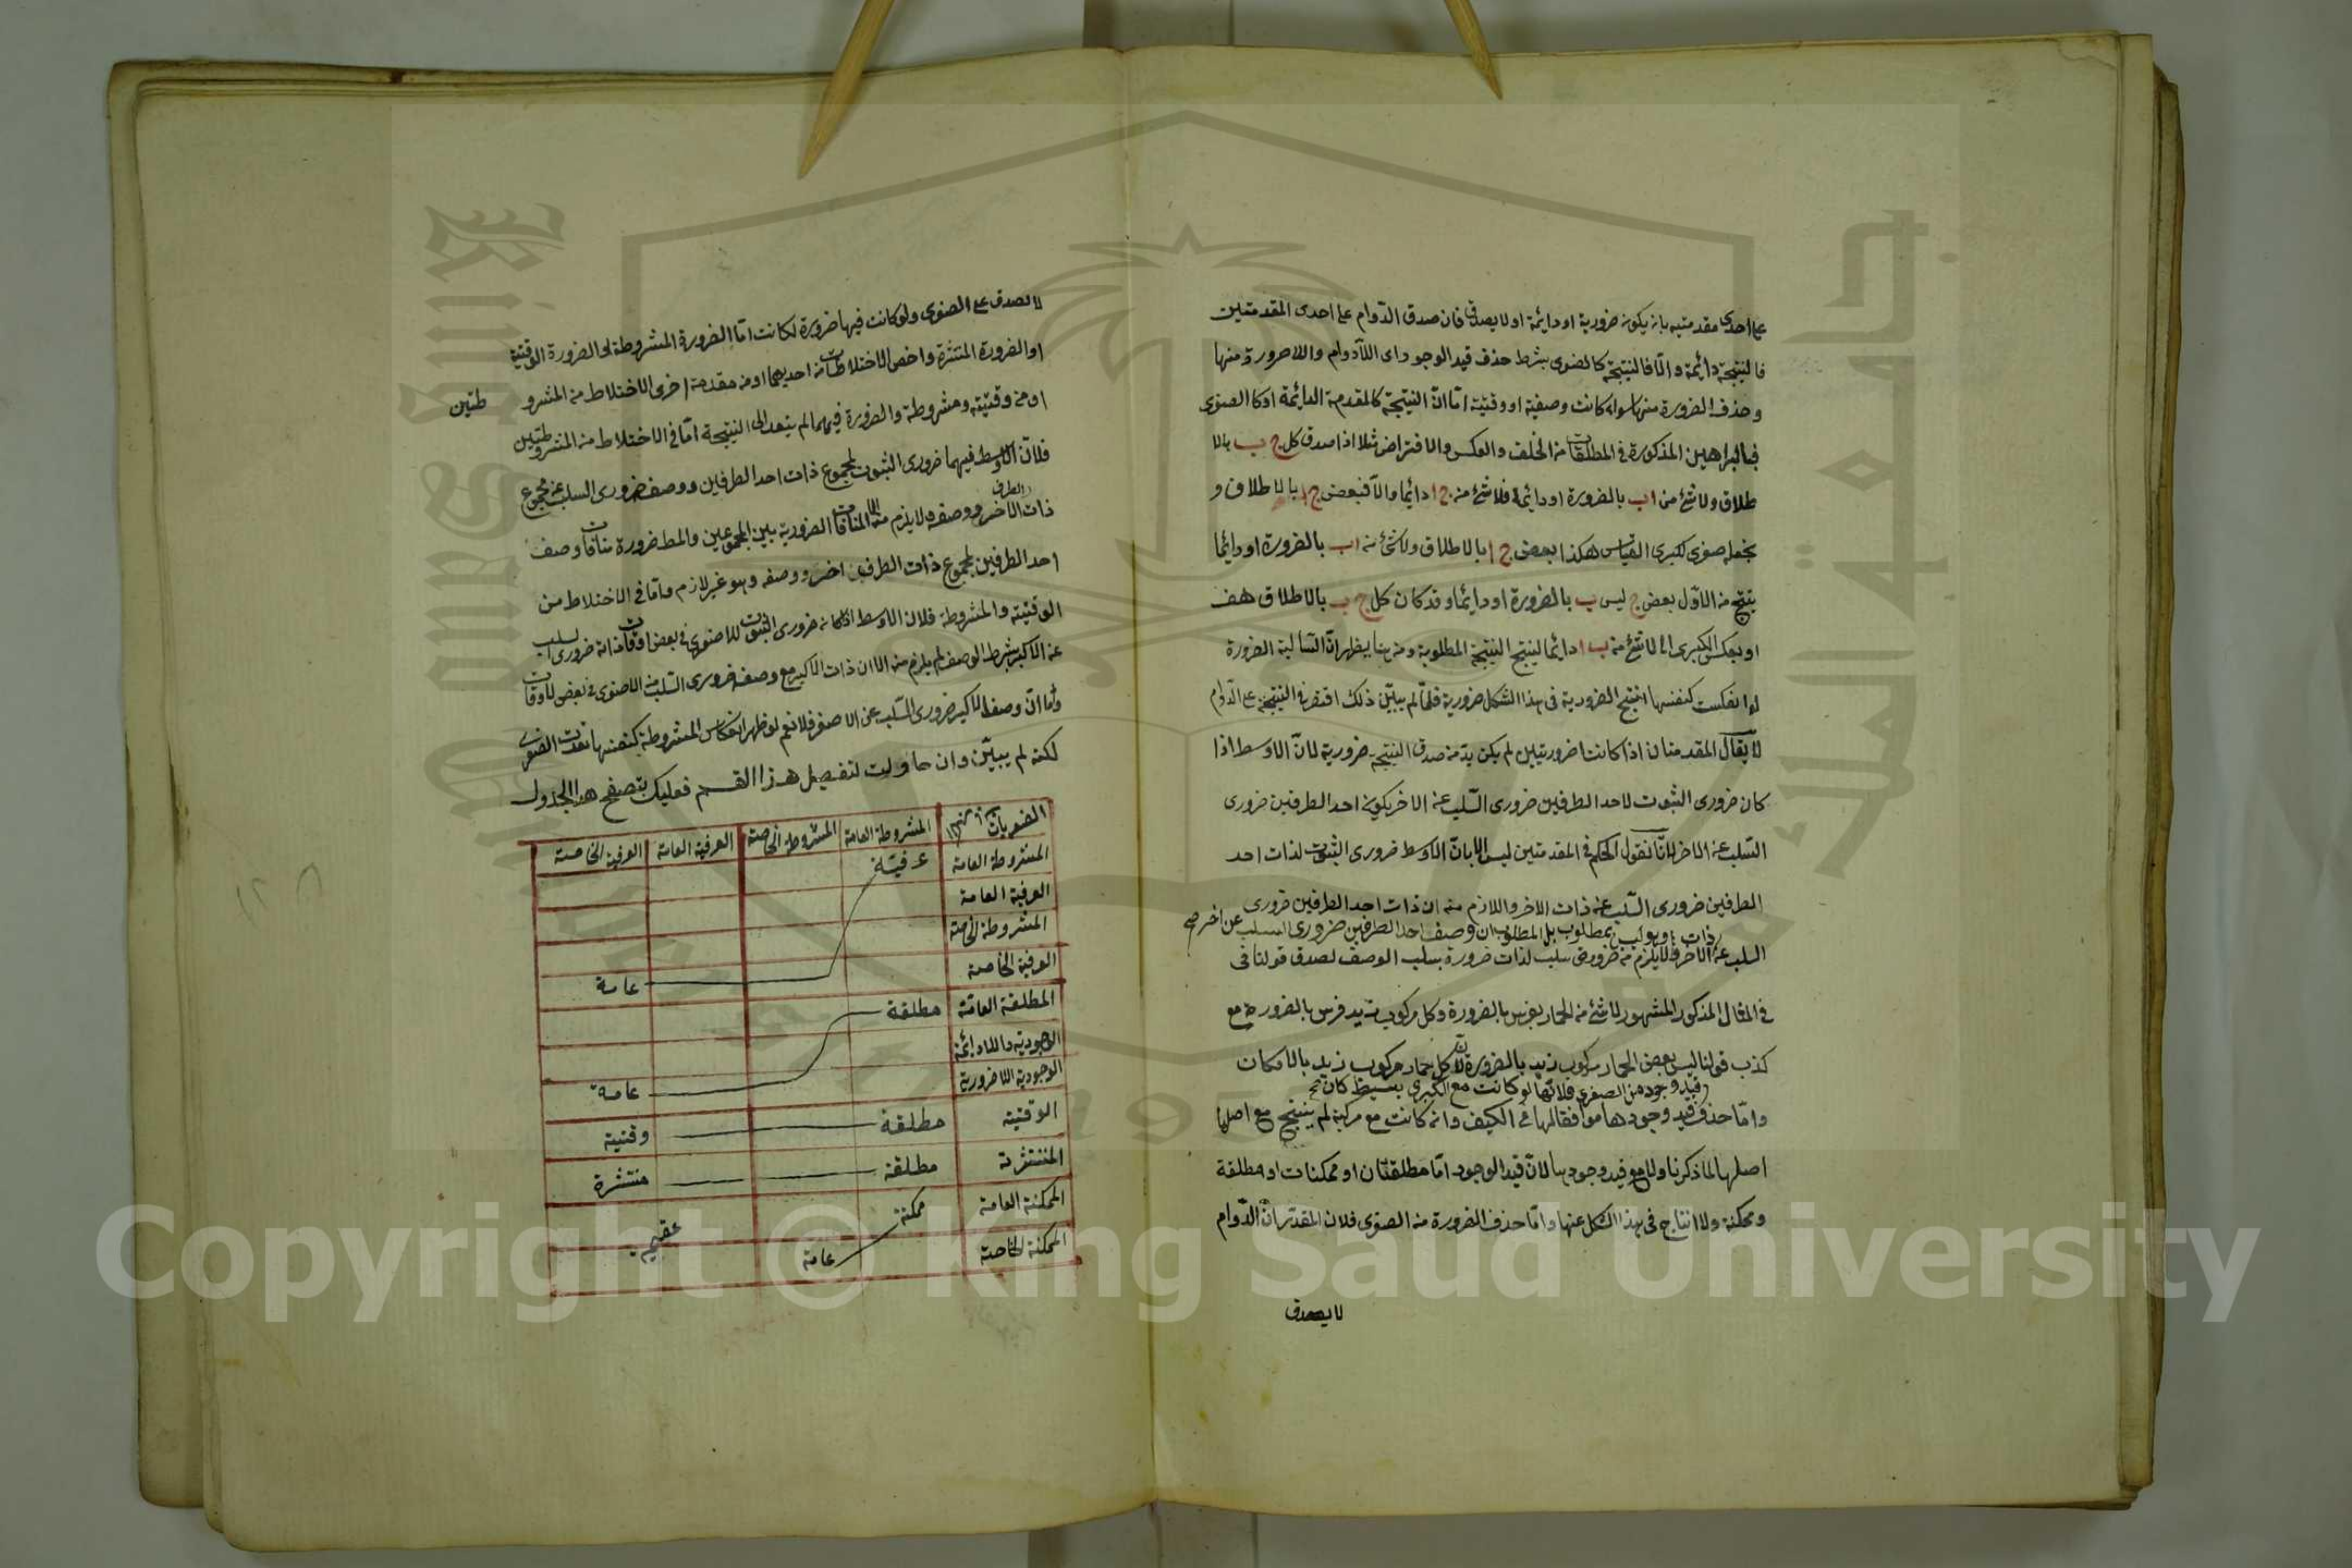 على احدى مقدمتيه بان يكون ضرورية او دائمة او لا يصدق فان صدق الدّوام على احدى المقدمتين
فالنتيجة دائمة والّا فالنتيجة كالصغرى بشرط حذف قيد الوجود اى اللّادوام واللاضرورة منها
وحذف الضرورة منها سواء كانت وصفية او وقتية امّا انّ النتيجة كالمقدمة الدائمة او كالصغرى
فبالبراهين المذكورة فى المطلقات من الخلف والعكس والافتراض مثلا اذا صدق كل ج ب بالا
طلاق ولا شئ من ا ب بالضرورة او دائما فلا شئ من ج ا دائما والّا فبعض ج ا بالاطلاق و
نجعله صغرى لكبرى القياس هكذا بعض ج ا بالاطلاق ولا شئ من ا ب بالضرورة او دائما
ينتج من الاوّل بعض ج ليس ب بالضرورة او دائما وقد كان كل ج ب بالاطلاق هف
او بعكس الكبرى الى لا شئ من ب ا دائما لينتج النتيجة المطلوبة ومن هنا يظهر انّ السالبة الضرورة
لو انعكست كنفسها انتج الضرورية فى هذا الشكل ضرورية فلمّا لم يبيّن ذلك اقتصر فى النتيجة على الدّوام
لا يقال المقدمتان اذا كانتا ضروريتين لم يكن بدّ من صدق النتيجة ضرورية لانّ الاوسط اذا
كان ضرورى الثبوت لاحد الطرفين ضرورى السّلب عن الاخر يكون احد الطرفين ضرورى
السّلب عن الاخر لانّا نقول الحكم فى المقدمتين ليس الا بانّ الاوسط ضرورى الثبوت لذات احد
الطرفين ضرورى السّلب عن ذات الاخر واللازم منه ان ذات احد الطرفين ضرورى
ذات وهو ليس بمطلوب بل المطلوب ان وصف احد الطرفين ضرورى السلب عن اخر صح
السلب عن الاخر ولا يلزم من ضرورة سلب الذات ضرورة سلب الوصف لصدق قولنا فى
فى المثال المذكور المشهور لا شئ من الحمار بفرس بالضرورة وكل مركوب زيد فرس بالضرورة مع
كذب قولنا ليس بعض الحمار مركوب زيد بالضرورة لان كل حمار مركوب زيد بالامكان
قيد وجود من الصغرى فلانّها لو كانت مع الكبرى بسيط كان صح
وامّا حذف قيد وجودها موافقا لها فى الكيف وان كانت مع مركبة لم ينتج مع اصلها
اصلها لما ذكرنا ولا مع قيد وجودها لانّ قيد الوجود امّا مطلقتان او ممكنات او مطلقة
وممكنة ولا انتاج فى هذا الشكل عنها وامّا حذف الضرورة من الصغرى فلان المقدّر انّ الدّوام
لا يصدق
لا يصدق على الصغرى ولو كانت فيها ضرورة لكانت امّا الضرورة المشروطة او الضرورة الوقتية
او الضرورة المنتشرة واخص الاختلاطات من احديهما ومن مقدمة اخرى الاختلاط من المشرو
طتين
او من وقتيّة ومشروطة والضرورة فيهما لم يتعد الى النتيجة امّا فى الاختلاط من المشروطتين
فلانّ الاوسط فيهما ضرورى الثبوت لمجموع ذات احد الطرفين ووصفه ضرورى السلب عن مجموع
الطرف
ذات الاخر ووصفه ولا يلزم منه الا المنافات الضرورية بين المجموعين والمط ضرورة منافات وصف
احد الطرفين لمجموع ذات الطرف اخر ووصفه وهو غير لازم وامّا فى الاختلاط من
الوقتيّة والمشروطة فلان الاوسط اذا كان ضرورى الثبوت للاصغر فى بعض اوقات ذاته ضرورى السلب
عن الاكبر بشرط الوصف لم يلزم منه الا ان ذات الاكبر مع وصفه ضرورى السّلب من الاصغر فى بعض الاوقات
وامّا انّ وصف الاكبر ضرورى السّلب عن الاصغر فلا نعم لو ظهر انعكاس المشروطة كنفسها تعدت الضرورة
لكنه لم يبيّن وان حاولت لتفصيل هذا القسم فعليك بتصفح هذا الجدول
الصغريات المشروطة العامة المشروطة الخاصة العرفية العامة العرفية الخاصة
المشروطة العامة عرفيّة
العرفية العامة
المشروطة الخاصة
العرفية الخاصة عامة
المطلقة العامّة مطلقة
الوجودية اللادائمة
الوجودية اللاضرورية عامة
الوقتية مطلقة وقتية
المنتشرة مطلقة منتشرة
الممكنة العامة ممكنة عقيم
الممكنة الخاصة عامة
Copyright © King Saud University